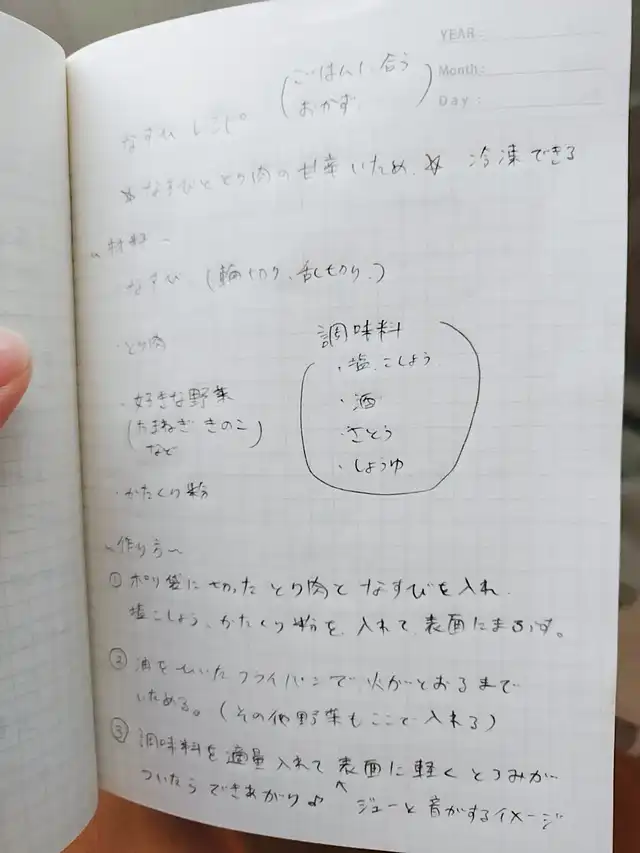 YEAR:
Month:
Day:
(ごはんに合う
おかず)
なすび レシピ
☆なすびととり肉の甘辛いため☆ 冷凍できる
~材料~
なすび (輪切り、乱切り、)
・とり肉
・好きな野菜
(たまねぎ きのこ
など)
・かたくり粉
調味料
・塩、こしょう
・酒
・さとう
・しょうゆ
~作り方~
①ポリ袋に切ったとり肉となすびを入れ、
塩こしょう、かたくり粉を入れて、表面にまぶす。
②油をひいたフライパンで、火がとおるまで
いためる。(その他野菜もここで入れる)
③調味料を適量入れて表面に軽くとろみが
ついたらできあがり♪ ^ジューと音がするイメージ